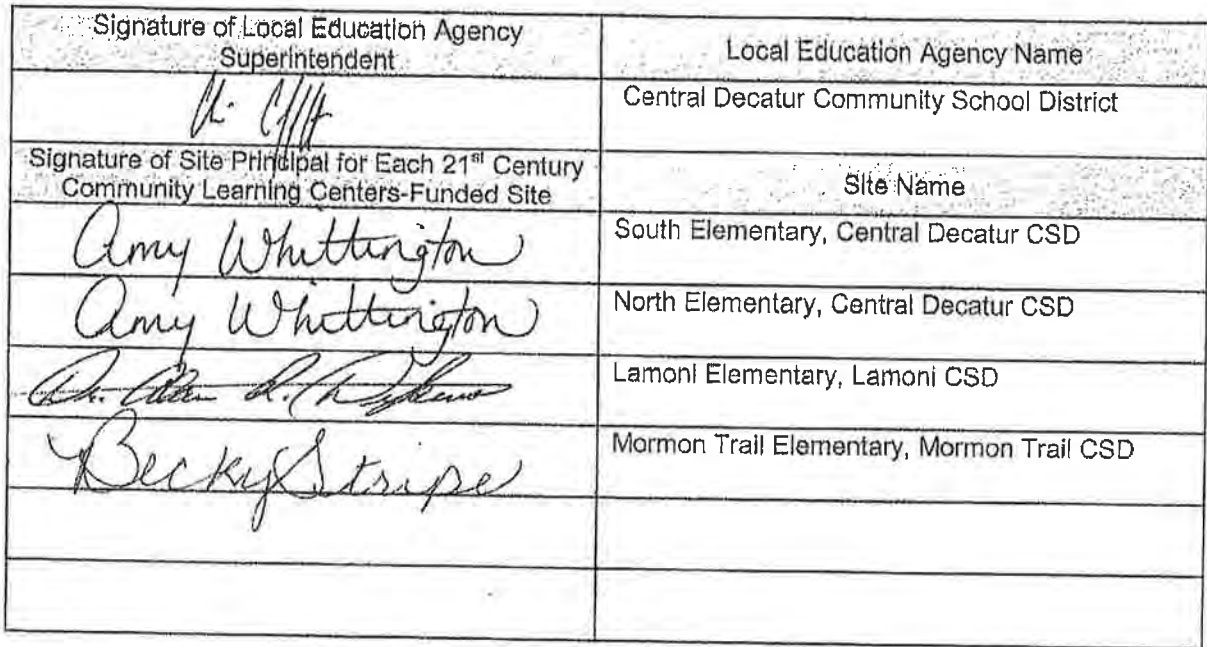 Signature of Local Education Agency
Superintendent
Local Education Agency Name
Central Decatur Community School District
Signature of Site Principal for Each 21st Century
Community Learning Centers-Funded Site
Site Name
Amy Whittington
South Elementary, Central Decatur CSD
Amy Whittington
North Elementary, Central Decatur CSD
Dr.
Lamoni Elementary, Lamoni CSD
Becky Stripe
Mormon Trail Elementary, Mormon Trail CSD